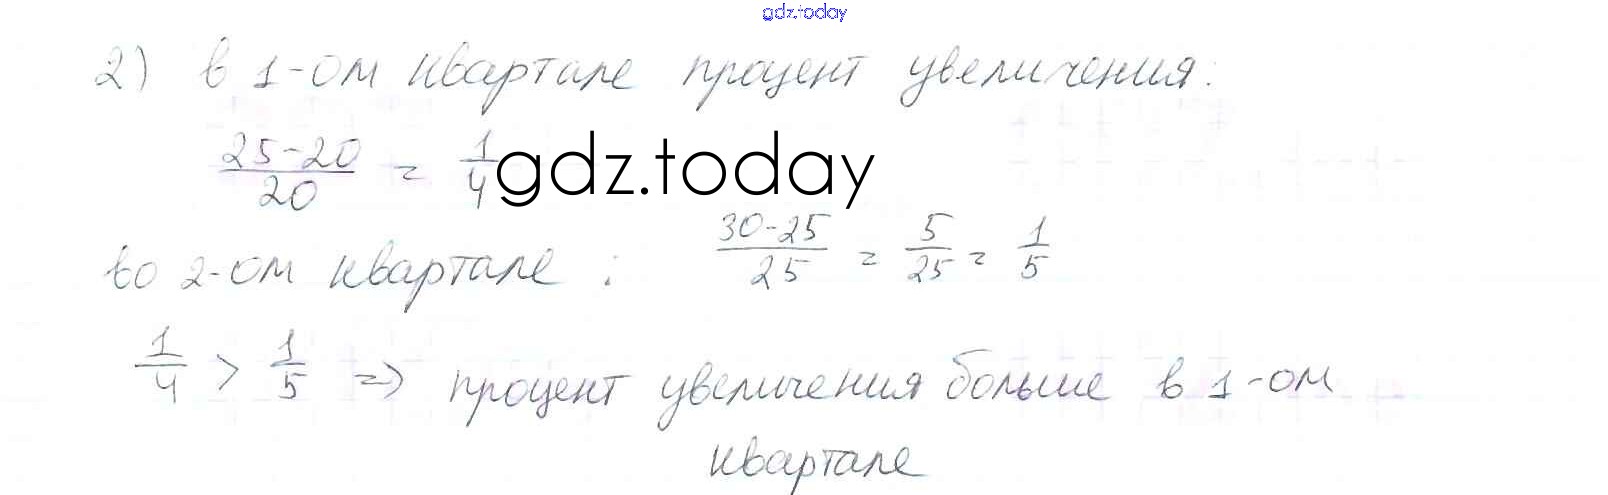 gdz.today
2) в 1-ом квартале процент увеличения:
25-20/20 = 1/4
gdz.today
во 2-ом квартале : 30-25/25 = 5/25 = 1/5
1/4 > 1/5 => процент увеличения больше в 1-ом
квартале